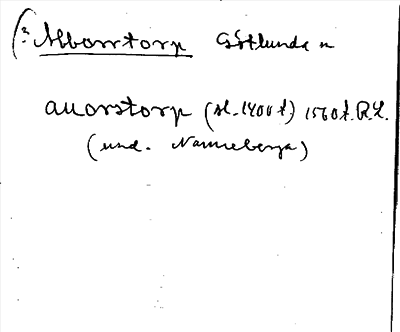 (? Alborrtorp Götlunda n
auorstorp (sl. 1400 t.) 1560 f. R.L.
(und. Nanneberga)